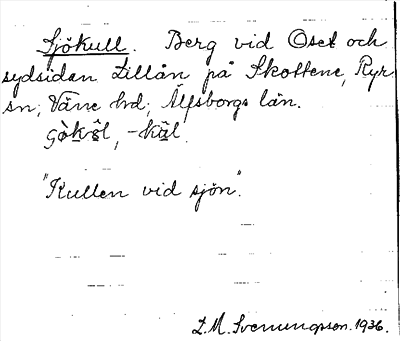 Sjökull. Berg vid Oset och
sydsidan Lillån på Skottene, Ryr
sn; Väne hd; Älfsborgs län.
-kûl
"Kullen vid sjön".
L.M. Svenungsson. 1936.